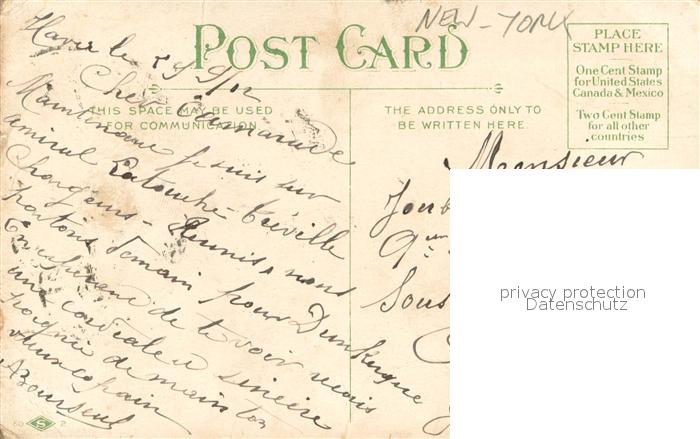 NEW-YORK
POST CARD
PLACE
STAMP HERE
One Cent Stamp
for United States
Canada & Mexico
Two Cent Stamp
for all other
countries
THIS SPACE MAY BE USED
FOR COMMUNICATION
THE ADDRESS ONLY TO
BE WRITTEN HERE.
Havre le
Cher Camarade
Maintenant je suis sur
amiral Latouche-Tréville
Chargeurs-Réunis, nous
partons demain pour Dunkerque
En espérant de te voir
une cordiale & sincère
poignée de main ton
vieux copain
Monsieur
Sous
privacy protection
Datenschutz
S
2